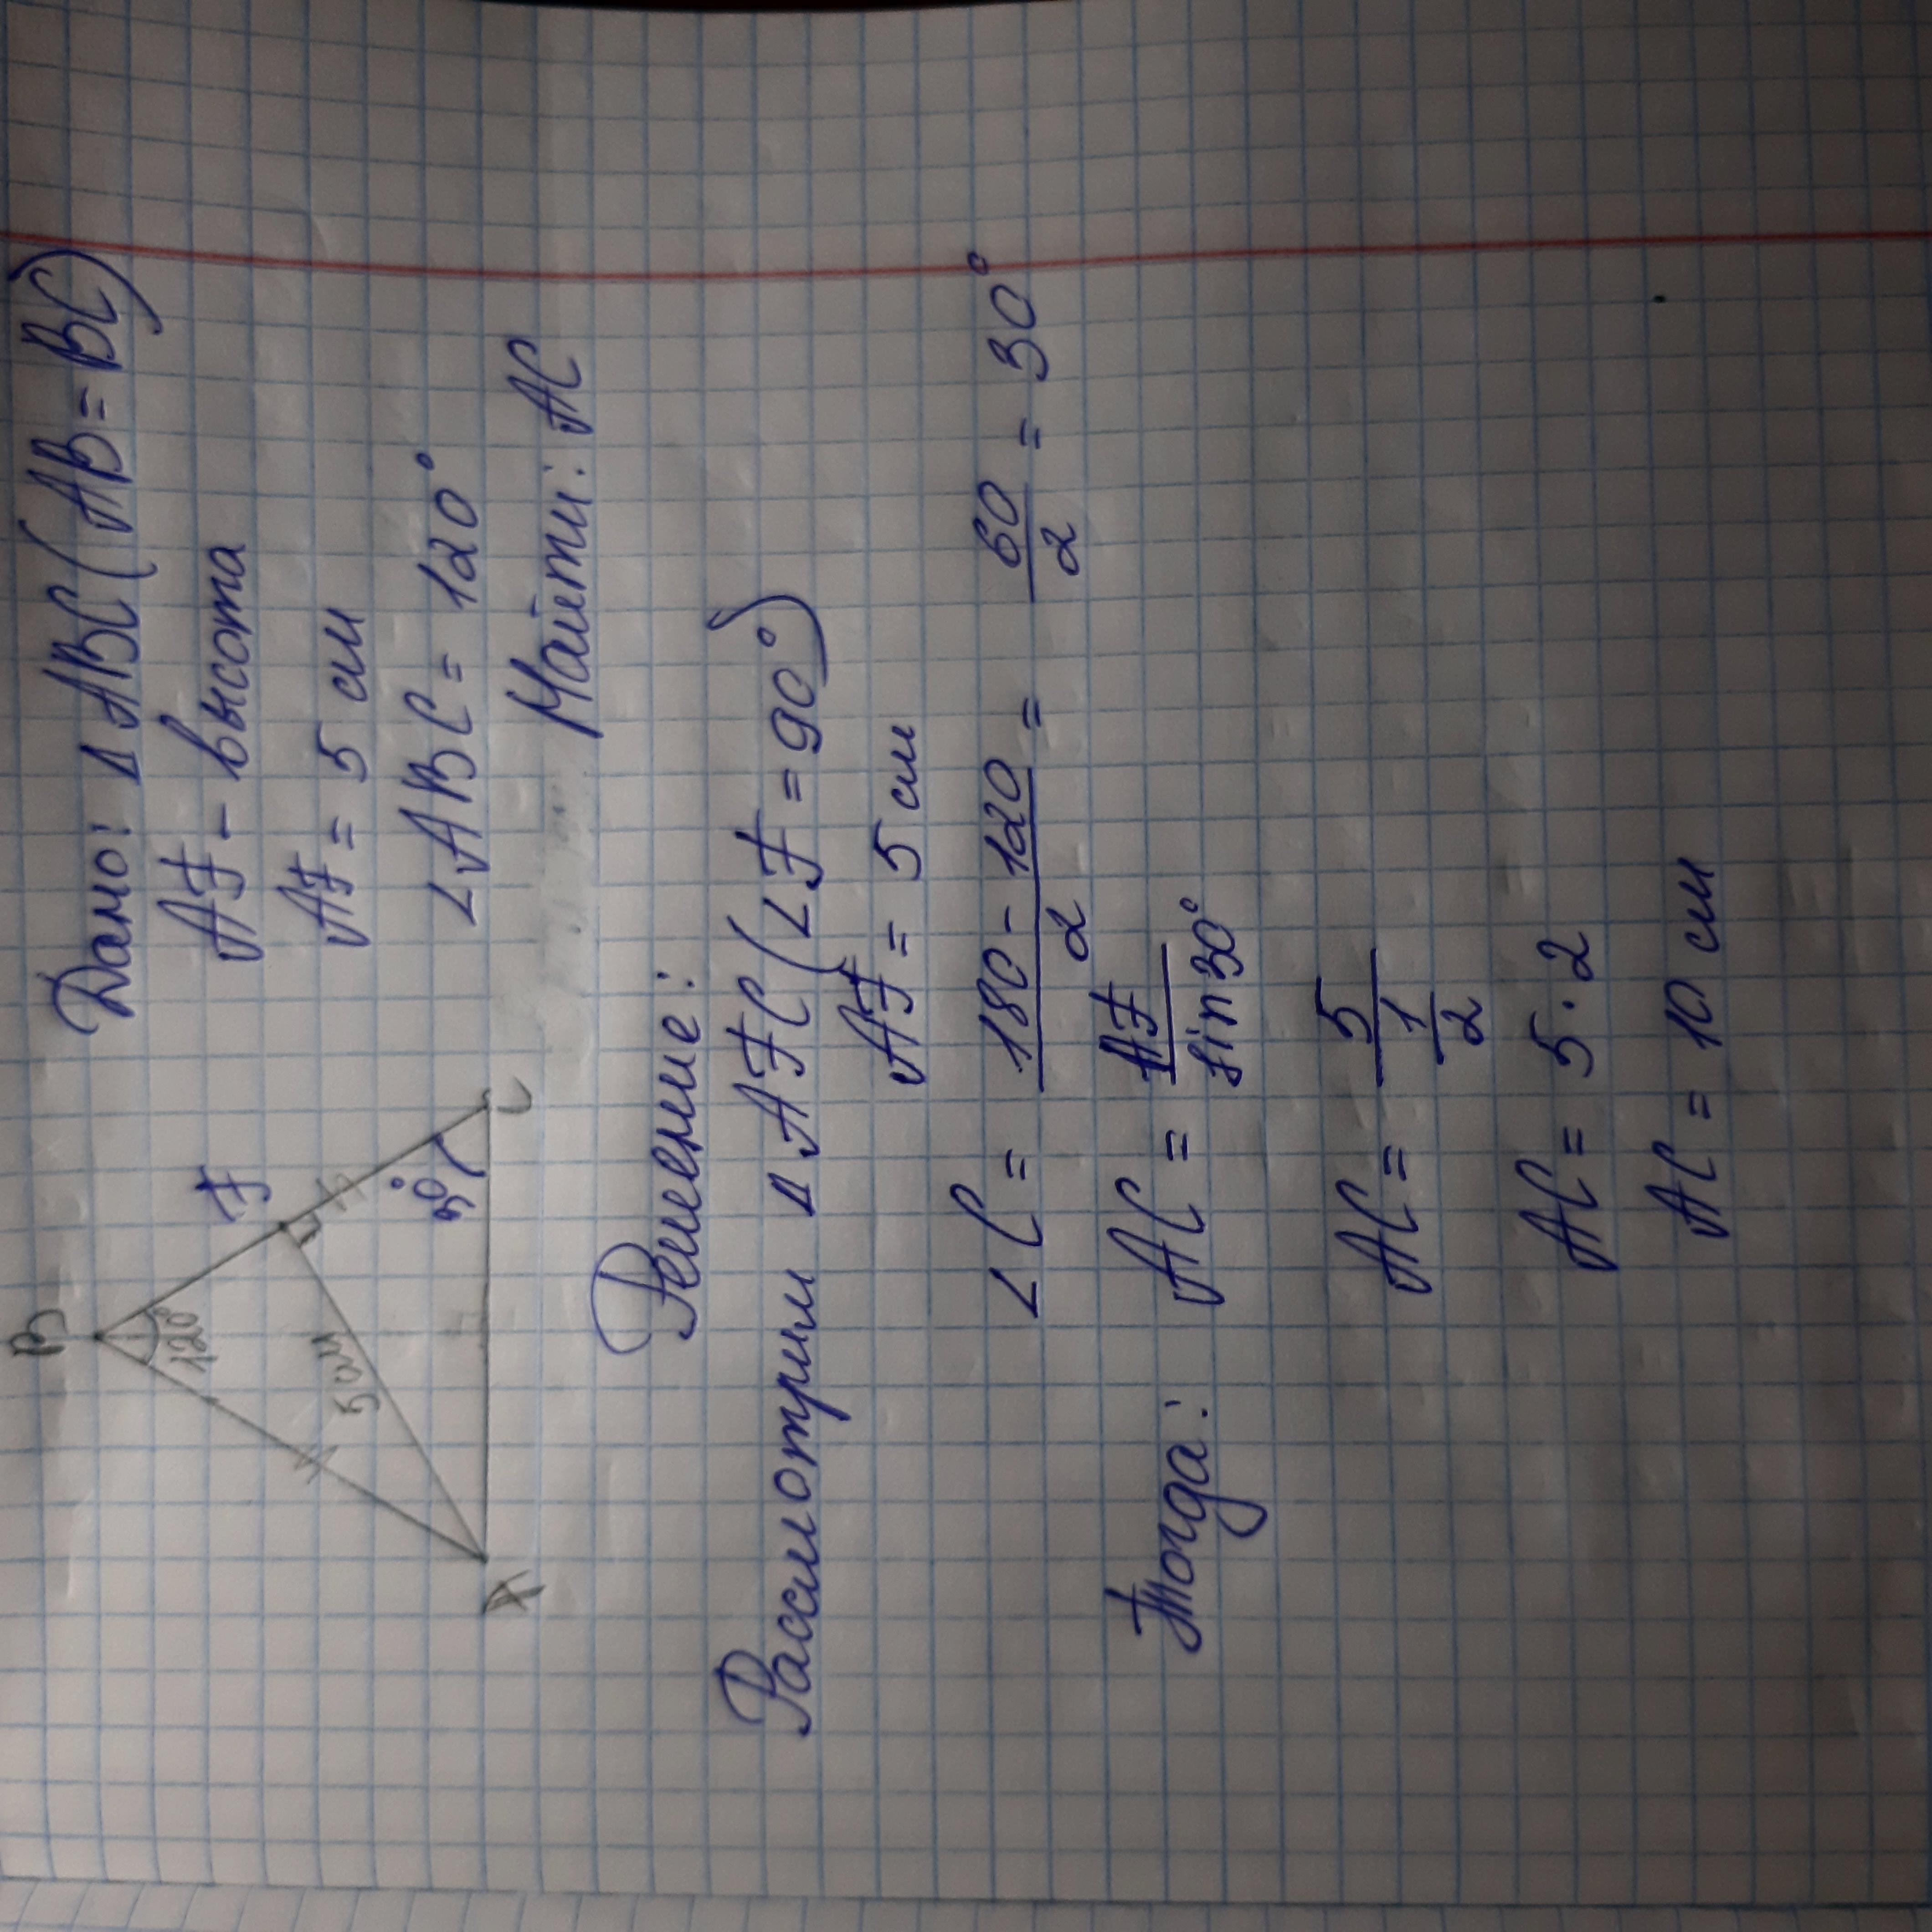 Дано: Δ ABC (AB = BC)
AF - высота
AF = 5 см
∠ABC = 120°
Найти: AC
B
120°
F
5 см
30°
A
C
Решение:
Рассмотрим Δ AFC (∠F = 90°)
AF = 5 см
∠C = \frac{180 - 120}{2} = \frac{60}{2} = 30°
Тогда: AC = \frac{AF}{sin 30°}
AC = \frac{5}{\frac{1}{2}}
AC = 5 · 2
AC = 10 см